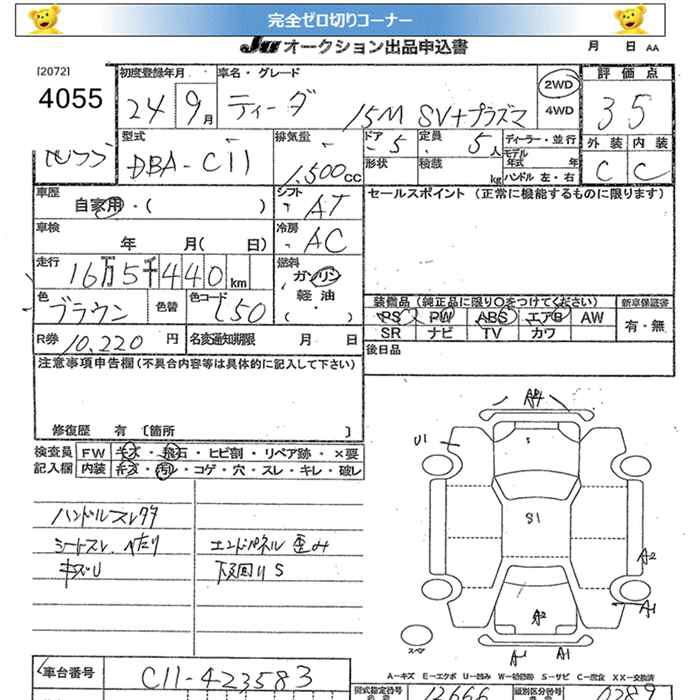 完全ゼロ切りコーナー
JU オークション出品申込書 月 日 AA
[2072]
4055
初度登録年月 24 9月
車名・グレード ティーダ 15M SV+プラズマ
2WD
4WD
評価点 35
外装 内装
C C
型式 DBA-C11
排気量 1,500cc
ドア 5
定員 5人
形状
積載 kg
ディーラー・並行
モデル年式 年
ハンドル 左・右
車歴 自家用・( )
シフト AT
セールスポイント (正常に機能するものに限ります)
車検 年 月( 日)
冷房 AC
走行 16万5千440km
燃料 ガソリン
軽油
( ・ )
色 ブラウン
色替
色コード L50
装備品 (純正品に限り○をつけてください) 新車保証書
PS PW ABS エアB AW 有・無
SR ナビ TV カワ
R券 10,220円
名変通知期限 月 日
後日品
注意事項申告欄(不具合内容等は具体的に記入して下さい)
修復歴 有 〔箇所 〕
検査員 FW キズ・飛石・ヒビ割・リペア跡・×要
記入欄 内装 キズ・汚レ・コゲ・穴・スレ・キレ・破レ
ハンドルスレ
シートスレ、へたり
キズU
エンドパネル歪み
下廻りS
U1
S1
A2
A2
A1
A1
スペア
A=キズ E=エクボ U=凹み W=補修跡 S=サビ C=腐食 XX=交換済
車台番号 C11-423583
型式指定番号
類別区分番号